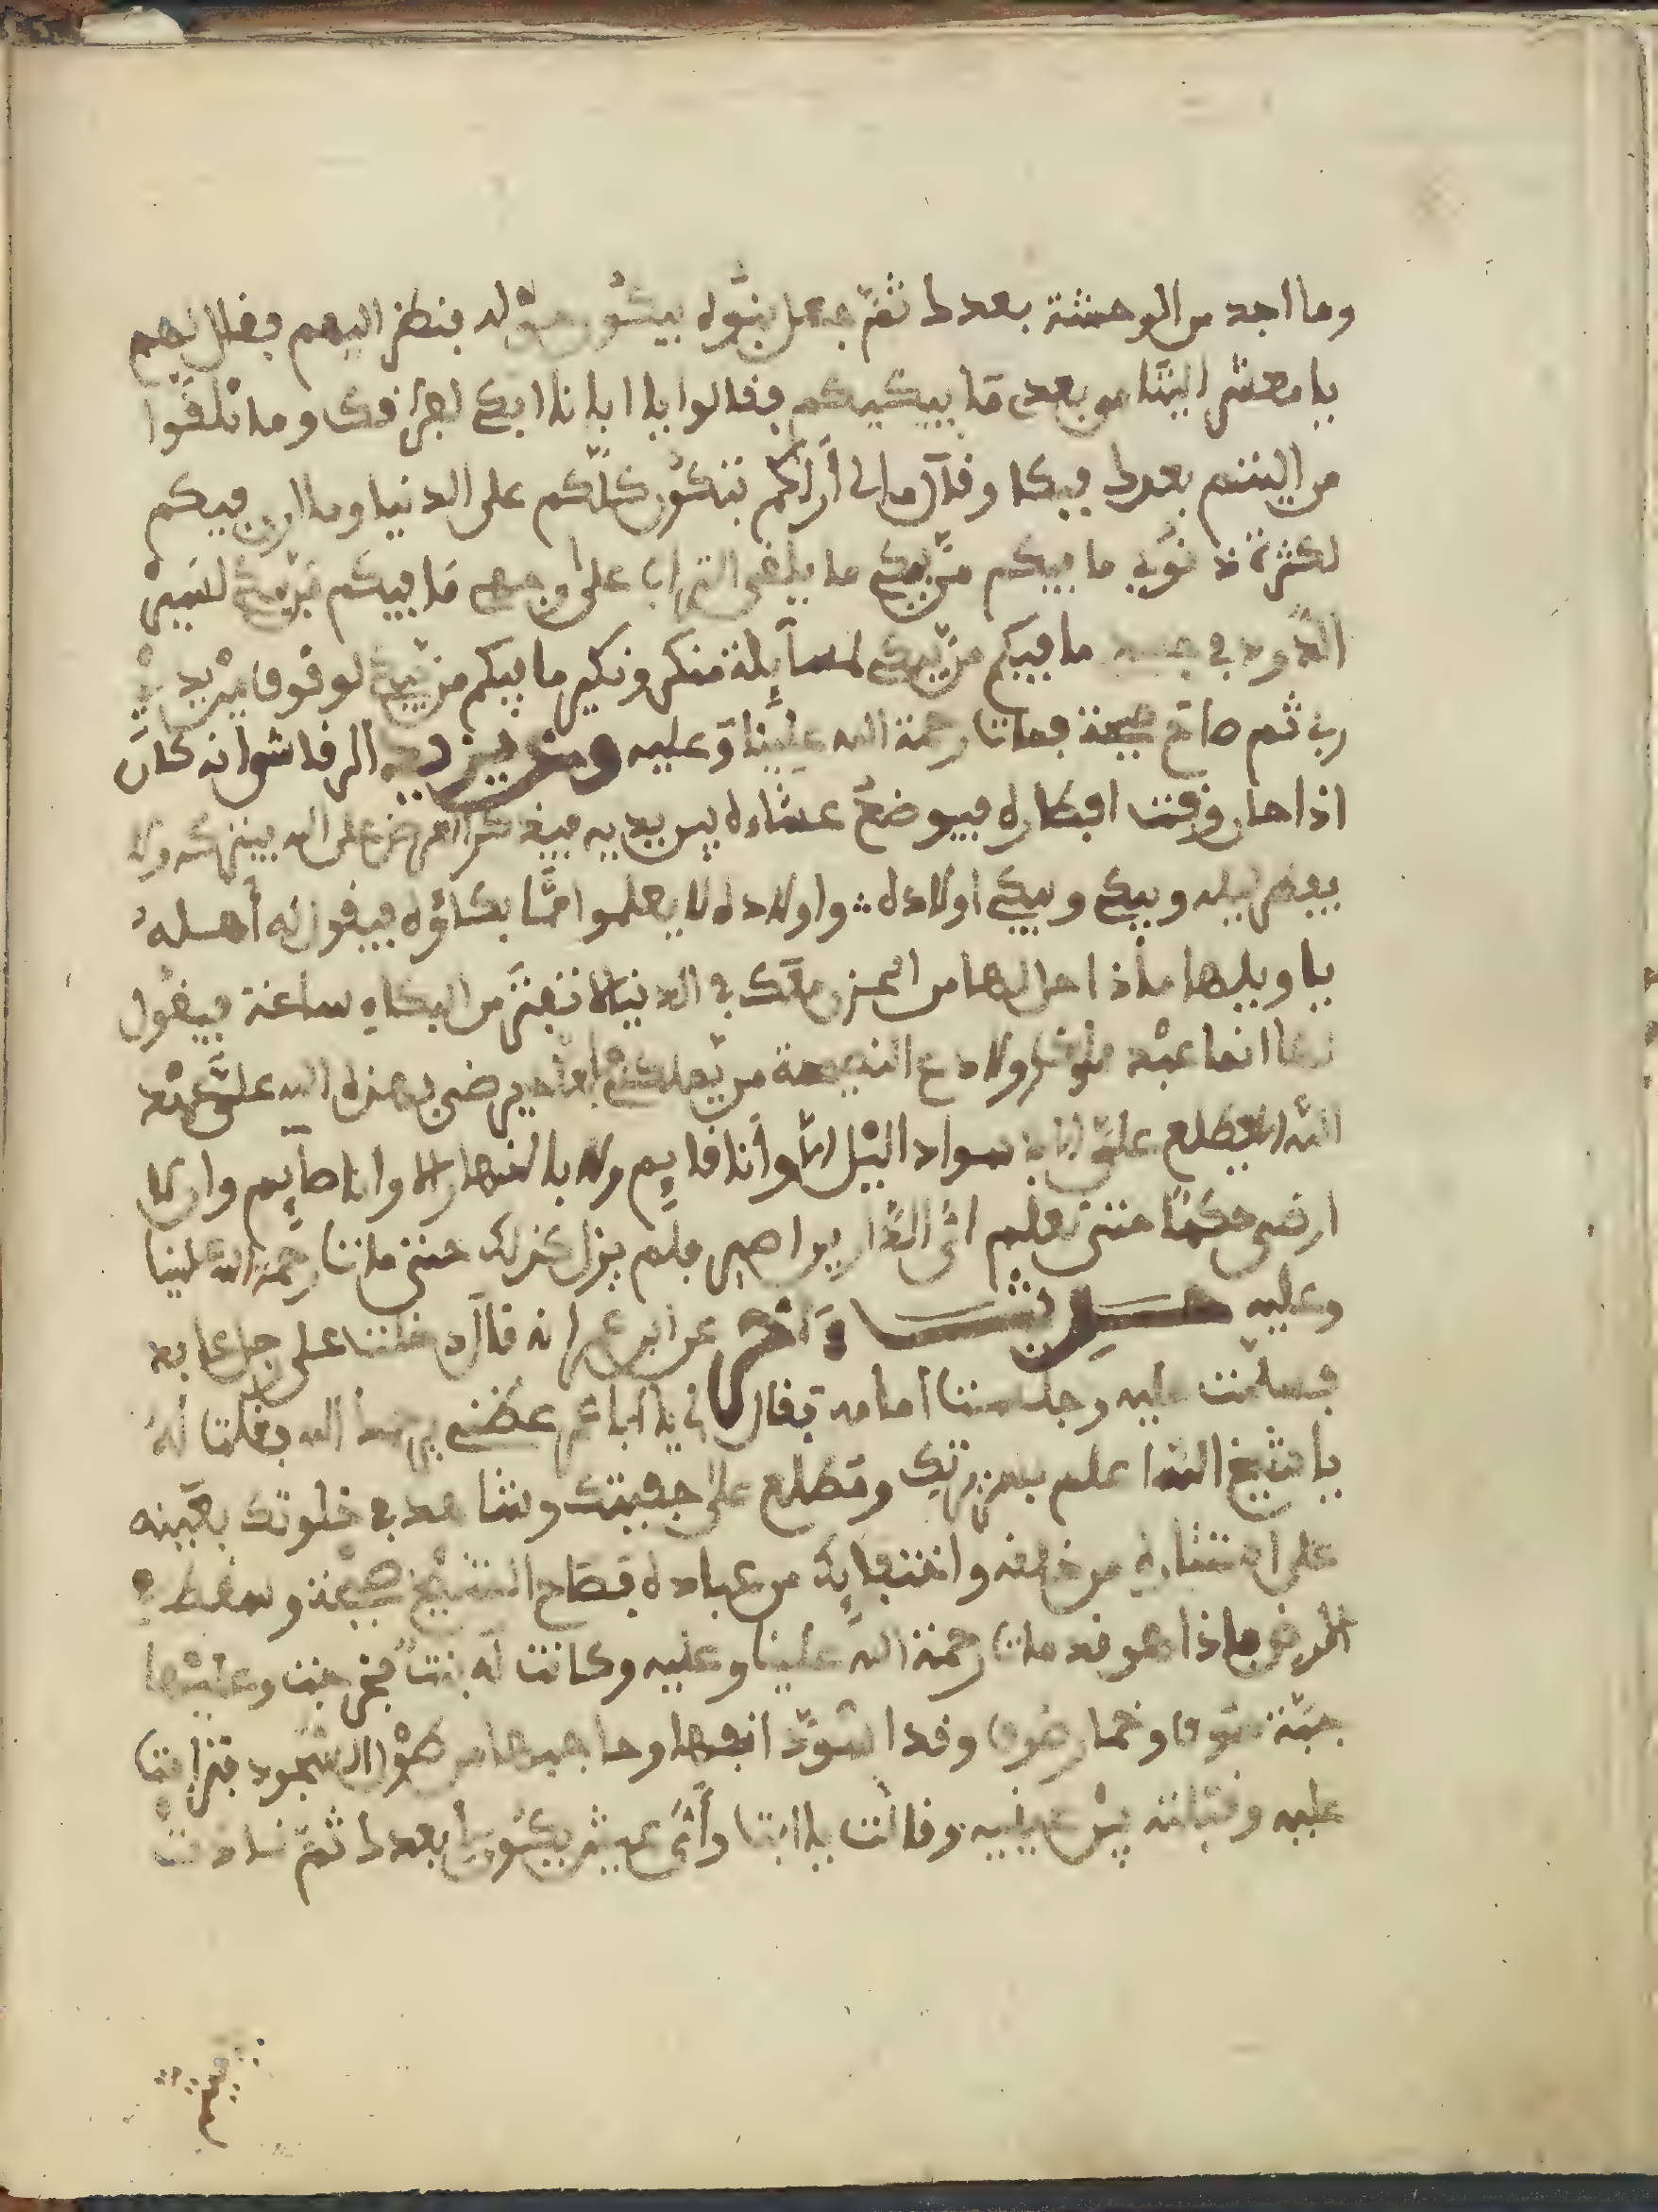 وما اجد من الوحشة بعدك ثم جعل بنوه يبكون حوله فنظر اليهم فقال لهم
يا معشر اليتامى بعدى ما يبكيكم فقالوا يا ابانا ابكى لفراقك وما نلقوا
من اليتم بعدك فبكا وقال ما لى أراكم تبكون كلكم على الدنيا وما ارى فيكم
لكثرة ذنوبى ما فيكم من يبكى ما يلقى التراب على وجهى ما فيكم من يبكى لسير
الدود فى جسدى ما فيكم من يبكى لمسآيلة منكر ونكير ما فيكم من يبكى لوقوفى بين يدى
رب ثم صاح صيحة فمات رحمة الله علينا وعليه ومنهم يزيد الرقاشى انه كان
اذا حان وقت افطاره فيوضع عشاءه بين يديه فيفكر العرض على الله فيتركه ولا
ويبكى ويبكى اولاده واولاده لا يعلموا مما بكاؤه فيقول له أهله
يا ويلها ماذا حل لها من الحزن معك فى الدنيا لا تفتر من البكاء ساعة فيقول
لها انما عبد ولا من يرضى الله على عهد
الله لا يطلع على فى سواد اليل الا وأنا قايم ولا بالنهار الا وانا صايم وان لا
ارضى حكما حتى نعلم اى الدارين اصير فلم يزل كذلك حتى مات رحمة الله علينا
وعليه حديث ءاخر عن ابى عمر انه قال دخلت على رجل عابد
فسلمت عليه وجلست امامه فقال لى يا ابا عمر عظنى يرحمك الله فقلت له
يا شيخ الله اعلم بسريرتك ومطلع على خفيتك وشاهد فى خلوتك بعينه
على استتارك من خلقه واختفايك من عباده فصاح الشيخ صيحة وسقط فى
الارض فاذا هو قد مات رحمة الله علينا وعليه وكانت له بنت فخرجت وعليها
جبة صوف وخمار صوف وقد اسود انفها وحاجبها من طول السجود فنزلت
عليه وقبلته بين عينيه وقالت يا ابتا وأى عيش يكون لى بعدك ثم نادت